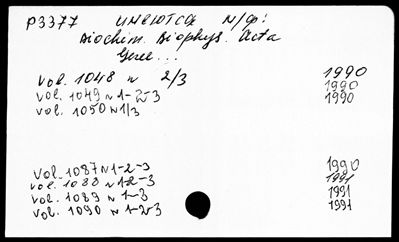 P3377 имеются м/ф:
Biochim. Biophys. Acta
Gene...
vol. 1048 N 2/3 1990
vol. 1049 N 1-2-3 1990
vol. 1050 N 1/3 1990
vol. 1087 N 1-2-3 1990
vol. 1088 N 1-2-3 1991
vol. 1089 N 1-3 1991
vol. 1090 N 1-2-3 1991